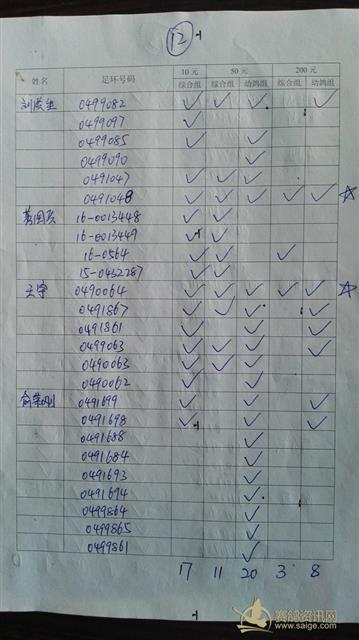 12
10元 50元 200元
姓名 足环号码 综合组 综合组 幼鸽组 综合组 幼鸽组
0499082 ✓ ✓ ✓ ✓
0499097 ✓
0499085 ✓ ✓
0499090 ✓
0491047 ✓ ✓ ✓
0491048 ✓ ✓ ✓ ✓ ✓ ☆
16-0013448 ✓ ✓
16-0013449 ✓ ✓
16-0564 ✓ ✓ ✓
15-0432287 ✓ ✓
天宇 0490064 ✓ ✓ ✓ ✓ ✓ ☆
0491867 ✓ ✓ ✓ ✓
0491861 ✓ ✓ ✓
0499063 ✓ ✓ ✓ ✓
0490063 ✓ ✓ ✓
0490062 ✓ ✓
0491699 ✓ ✓ ✓
0491698 ✓ ✓ ✓
0491688 ✓
0491684 ✓
0491693 ✓
0491694 ✓
0499864 ✓
0499865 ✓
0499861 ✓
17 11 20 3 8
赛鸽资讯网
www.saige.com